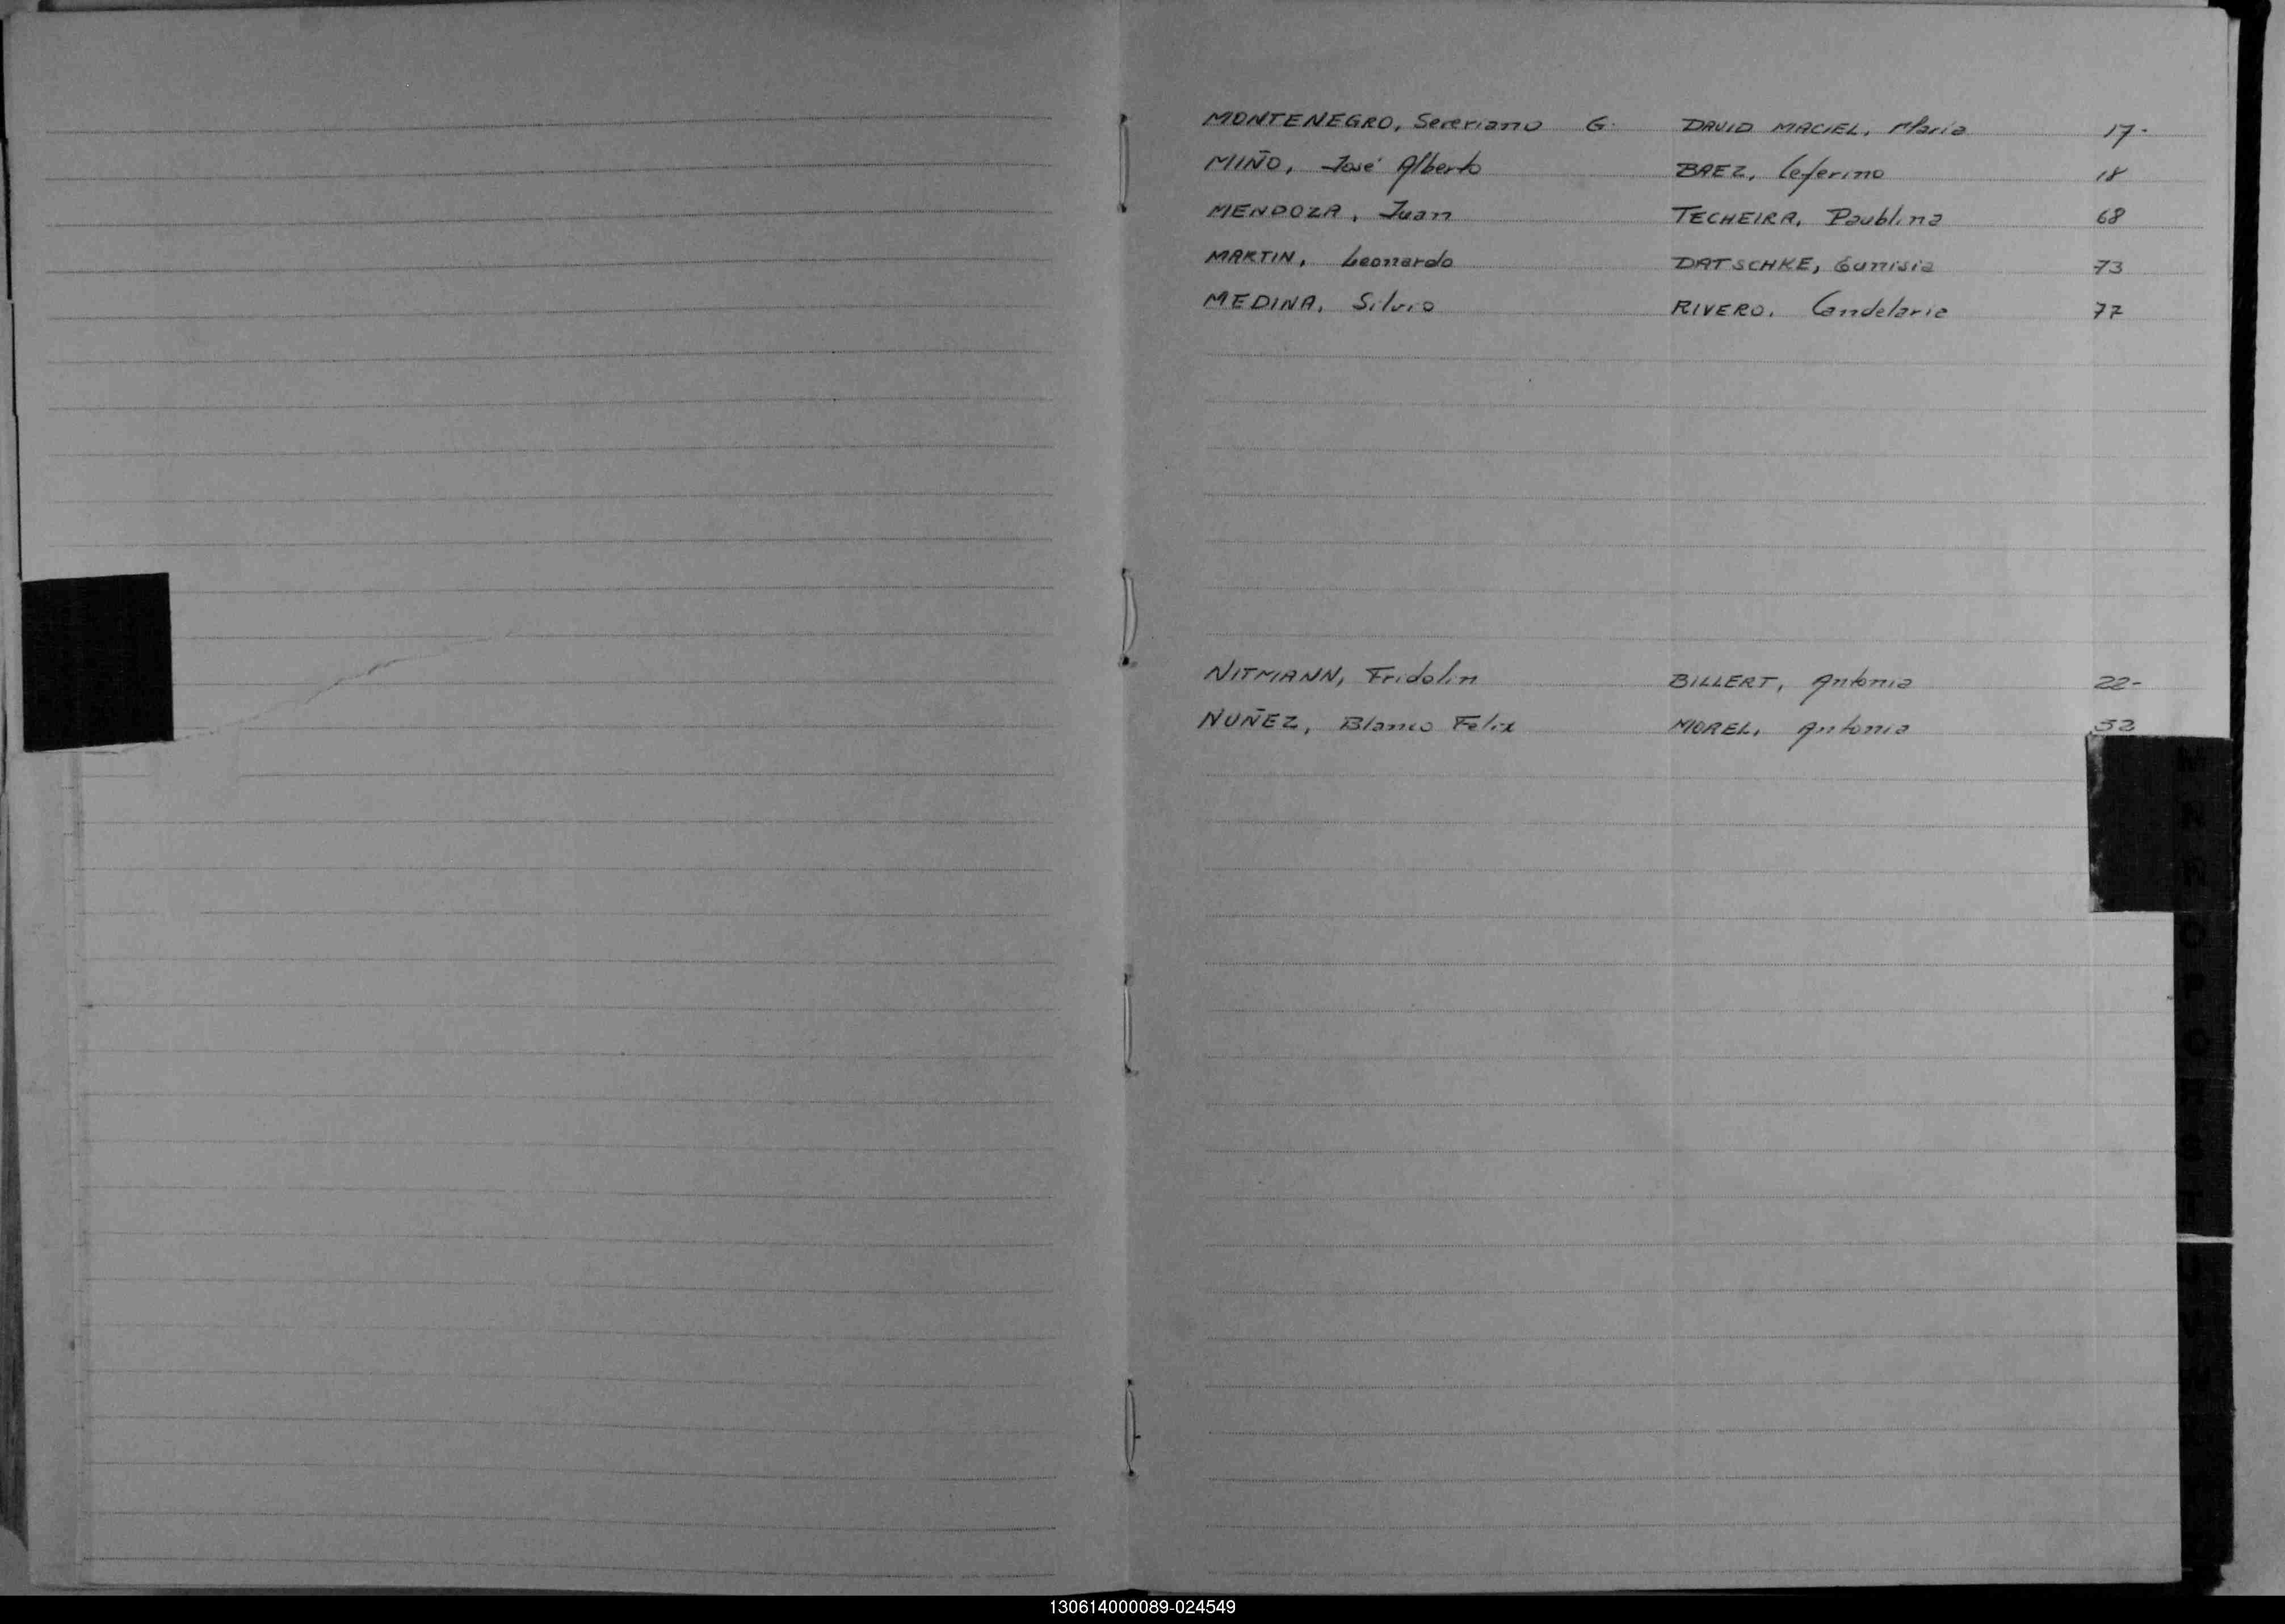 MONTENEGRO, Severiano G. DAVID MACIEL, Maria 17-
MIÑO, José Alberto BAEZ, Ceferino 18
MENDOZA, Juan TECHEIRA, Paublina 68
MARTIN, Leonardo DATSCHKE, Eunisia 73
MEDINA, Silvio RIVERO, Candelaria 77
NITMANN, Fridolin BILLERT, Antonia 22-
NUÑEZ, Blanco Felix MOREL, Antonia 32
M
N
Ñ
O
P
Q
R
S
T
U
130614000089-024549